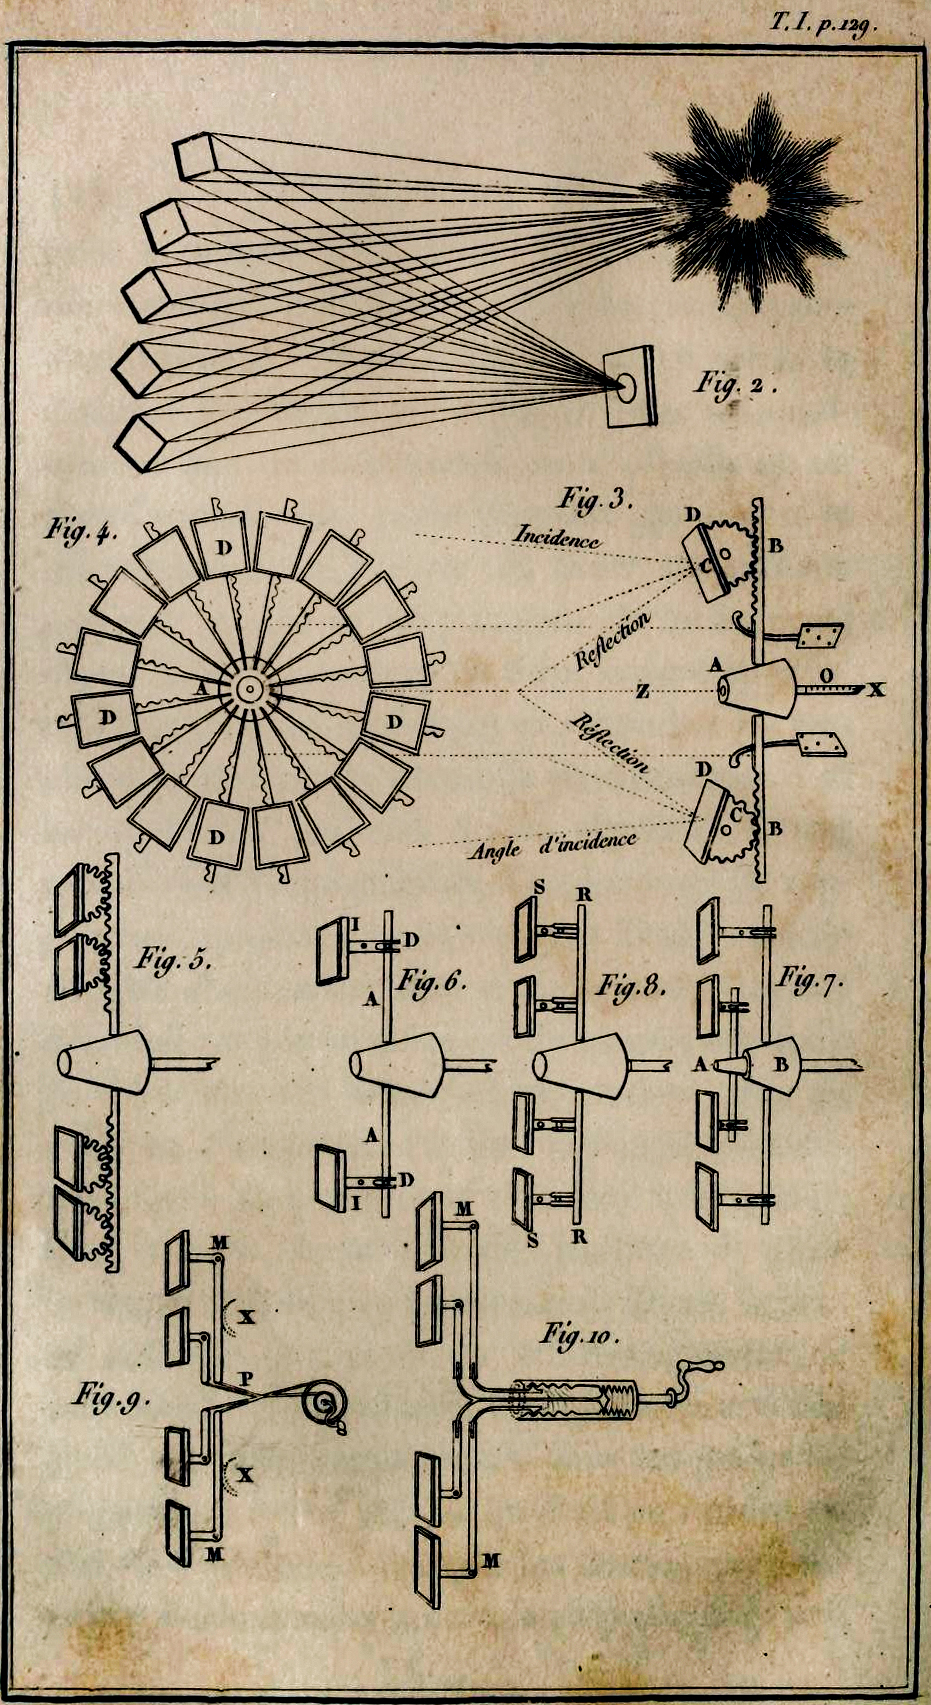 T. I. p. 129.
Fig. 2.
Fig. 3.
Fig. 4.
D
Incidence
D
C
B
Reflection
A
A
Z
O
X
D
D
Réflection
D
C
B
D
Angle d'incidence
Fig. 5.
I
D
A
Fig. 6.
A
D
I
S
R
Fig. 8.
S
R
Fig. 7.
A
B
M
X
P
Fig. 9.
X
M
M
Fig. 10.
M